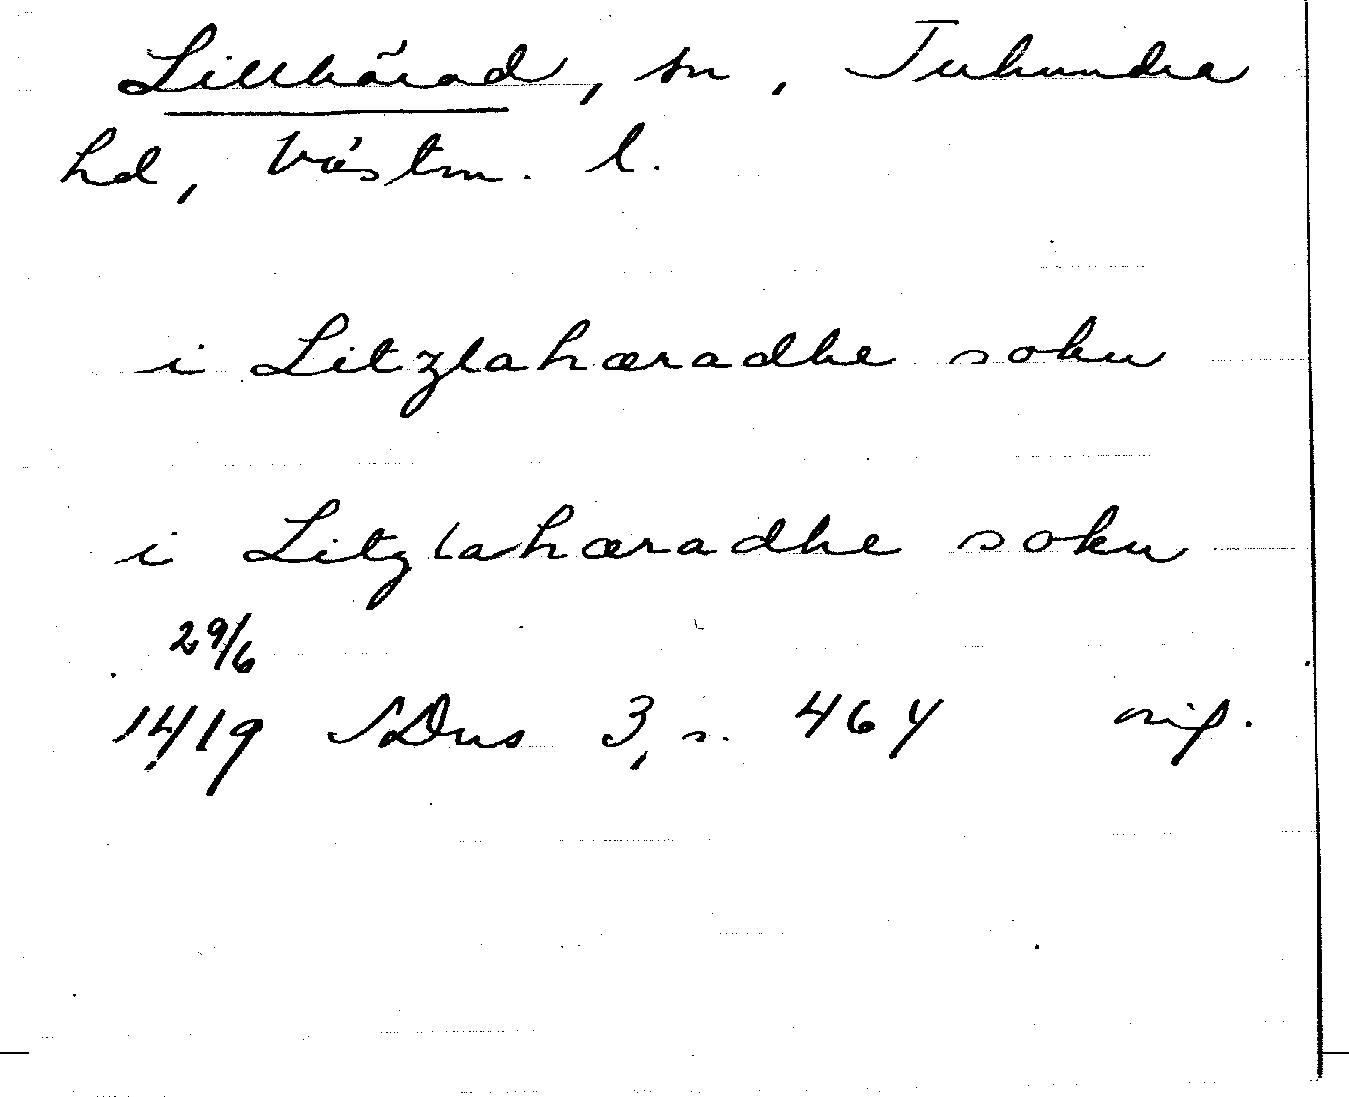 Lillhärad, sn, Tuhundra
hd, Västm. l.
i Litzlahæradhe sokn
i Litzlahæradhe sokn
29/6
1419 SDns 3, s. 464 orig.